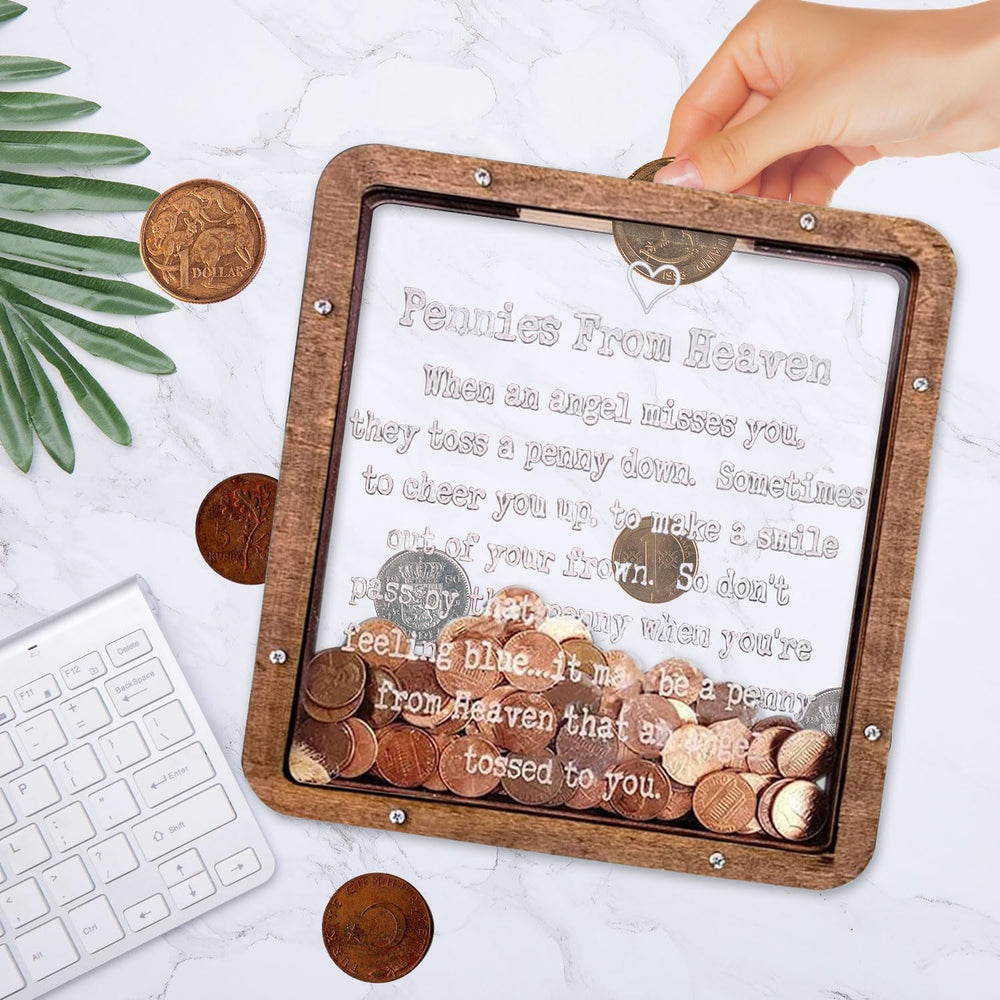 Pennies From Heaven
When an angel misses you,
they toss a penny down. Sometimes
to cheer you up, to make a smile
out of your frown. So don't
pass by that penny when you're
feeling blue...it may be a penny
from Heaven that an angel
tossed to you.
1 DOLLAR
5
1
Delete
F11
F12
BackSpace
Enter
Shift
P
L
Alt
Ctrl